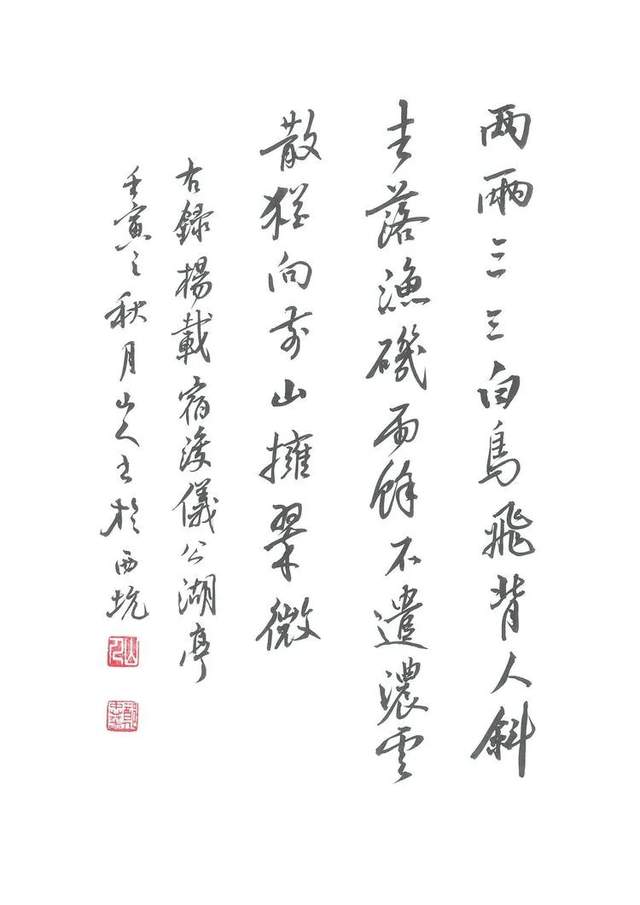 兩兩三三白鳥飛背人斜
去落漁磯雨餘不遣濃雲
散猶向前山擁翠微
右錄楊載宿浚儀公湖亭
壬寅之秋月山人书於西坑